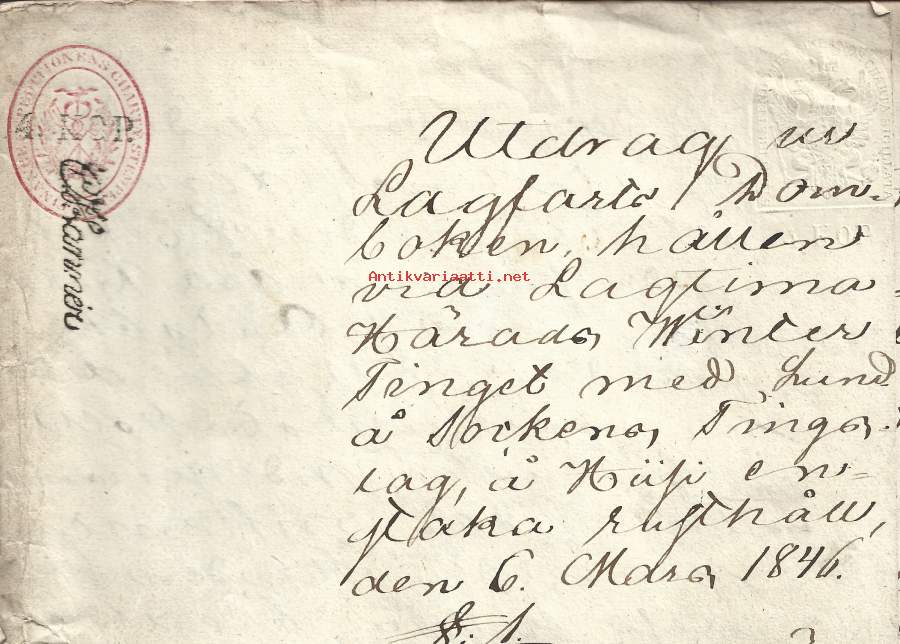 Utdrag ur
Lagfarts Dom-
boken, hållen
vid Lagtima
Härads Winter
Tinget med
å Sockens Tings-
lag, å en-
staka rusthåll,
den 6. Mars 1846.
Antikvariaatti.net